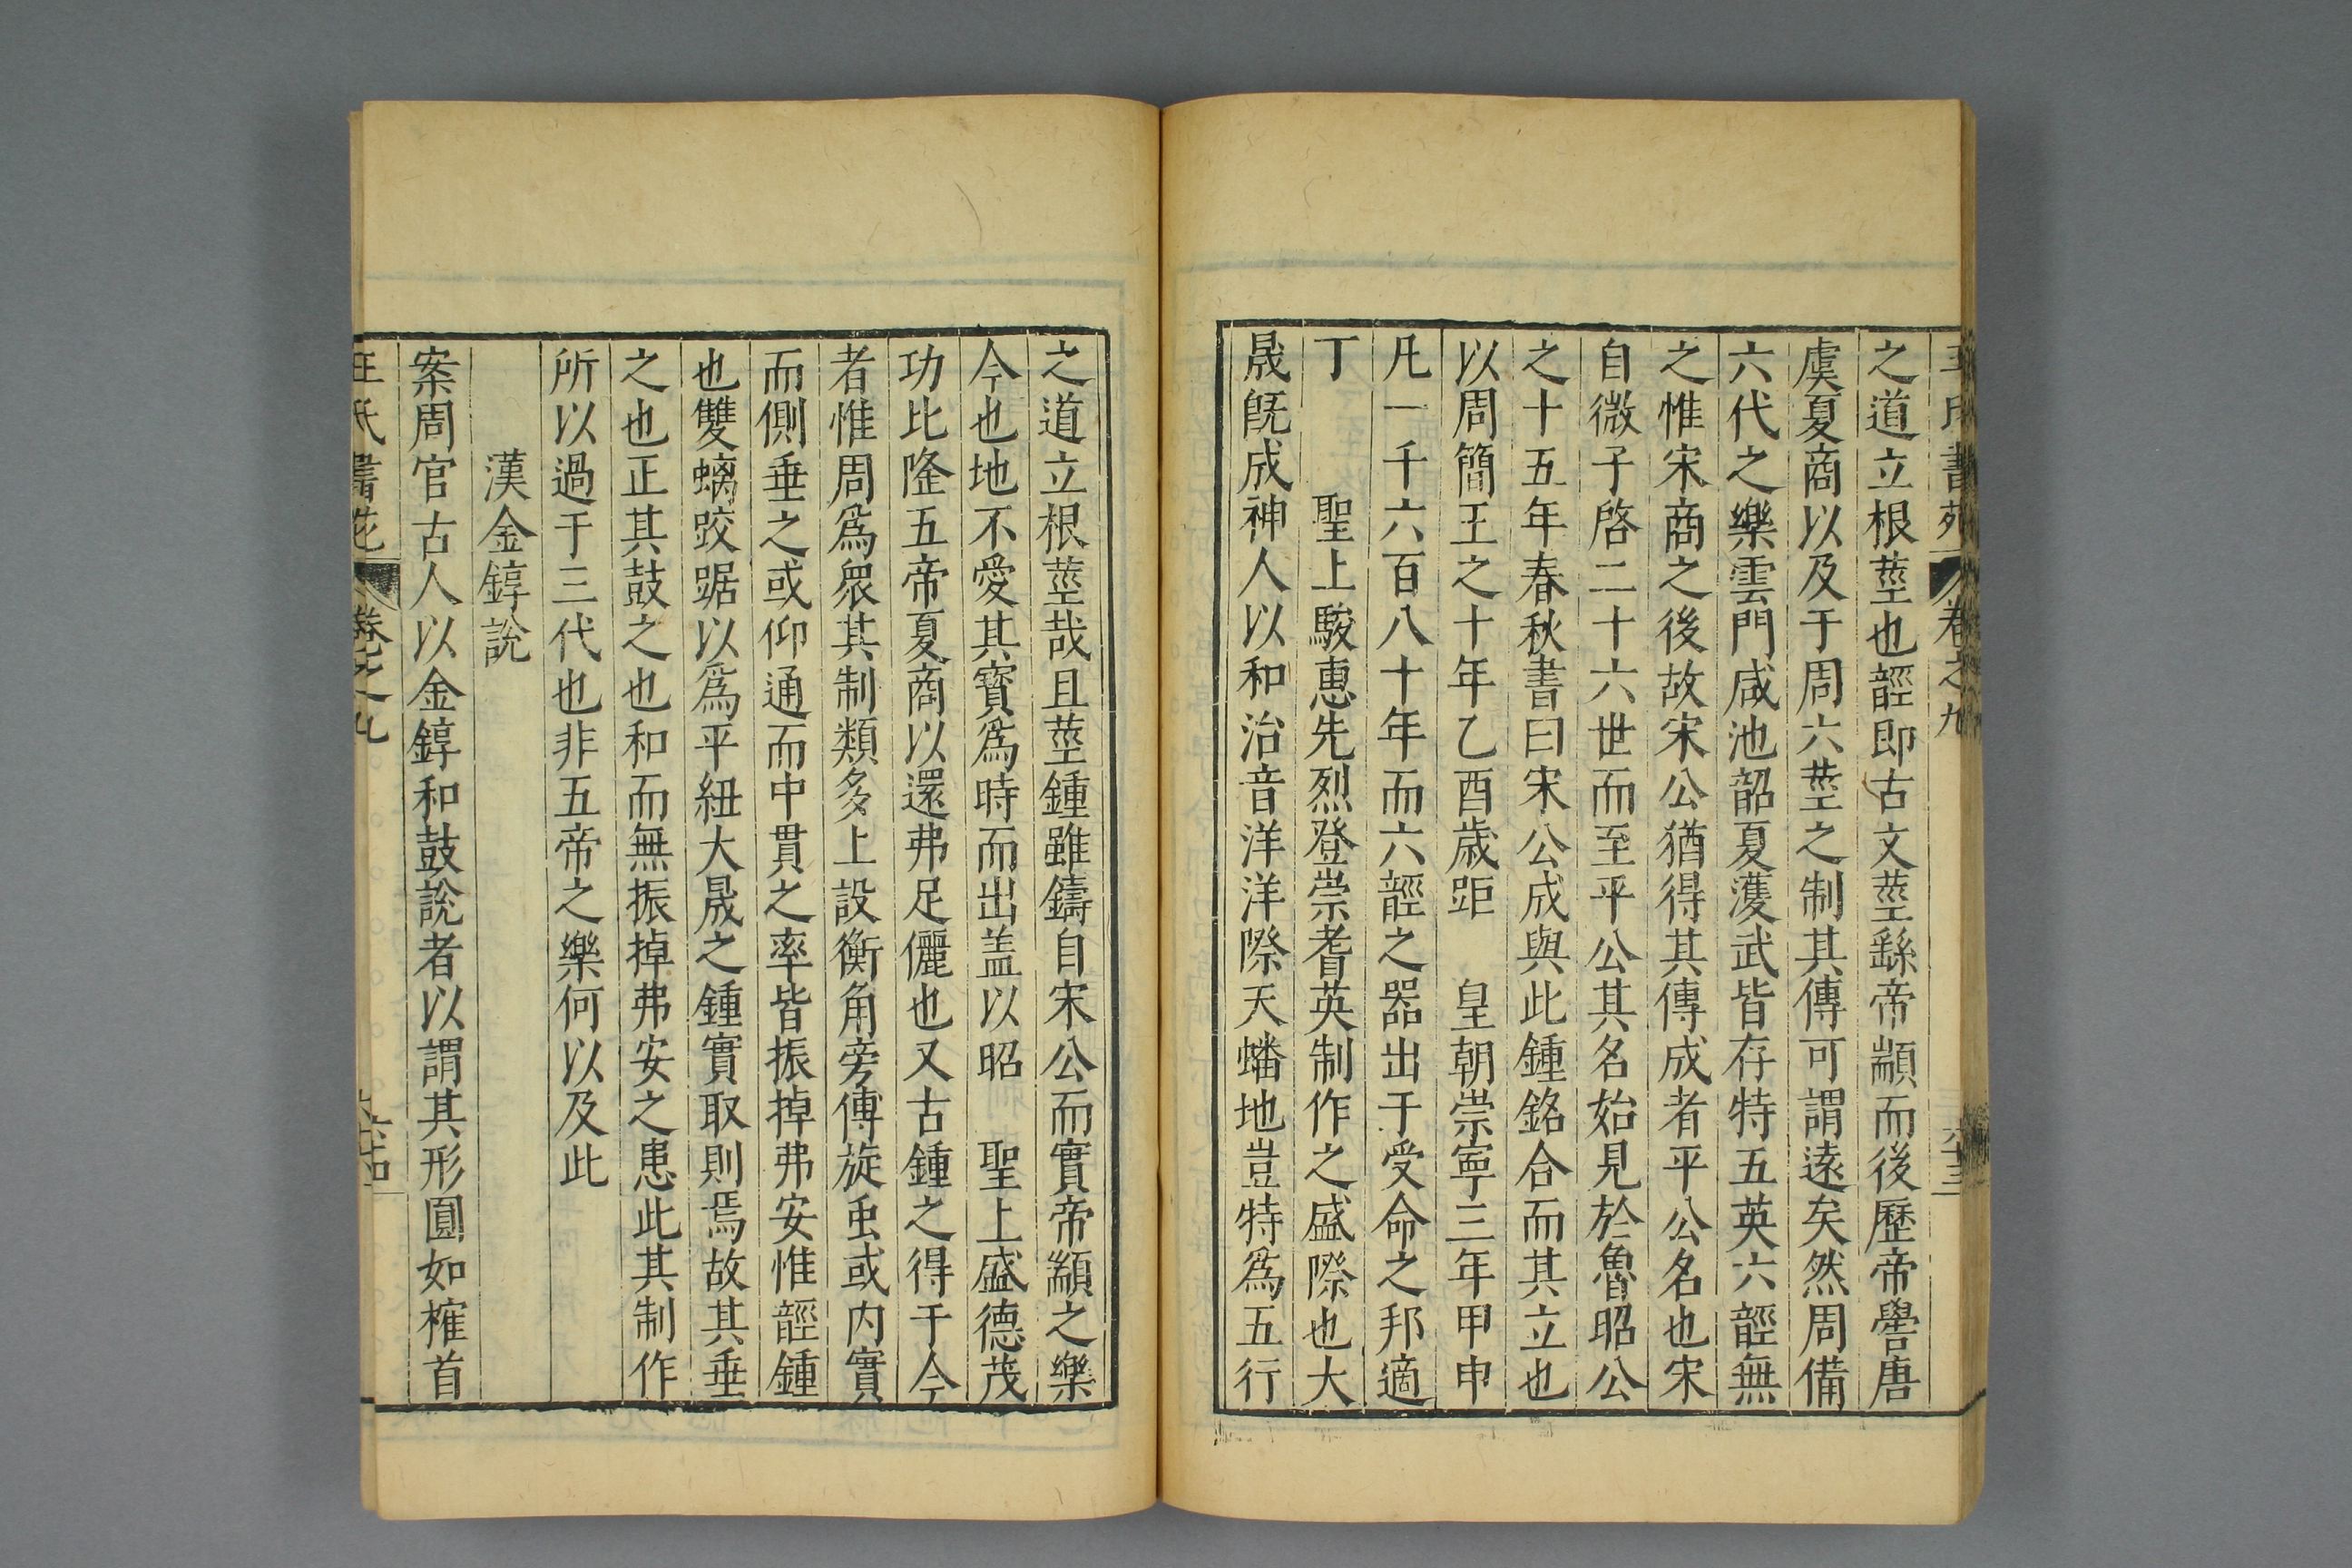 王氏書苑 卷之九 六十三
之道立根莖也䪫即古文莖繇帝顓而後歷帝嚳唐
虞夏商以及于周六莖之制其傳可謂遠矣然周備
六代之樂雲門咸池韶夏濩武皆存特五英六䪫無
之惟宋商之後故宋公猶得其傳成者平公名也宋
自微子啓二十六世而至平公其名始見於魯昭公
之十五年春秋書曰宋公成與此鍾銘合而其立也
以周簡王之十年乙酉歲距 皇朝崇寧三年甲申
凡一千六百八十年而六䪫之器出于受命之邦適
丁 聖上駿惠先烈登崇耆英制作之盛際也大
晟旣成神人以和治音洋洋際天蟠地豈特爲五行
之道立根莖哉且莖鍾雖鑄自宋公而實帝顓之樂
今也地不愛其寶爲時而出盖以昭 聖上盛德茂
功比隆五帝夏商以還弗足儷也又古鍾之得于今
者惟周爲衆其制類多上設衡角旁傅旋虫或内實
而側垂之或仰通而中貫之率皆振掉弗安惟䪫鍾
也雙螭跤踞以爲平紐大晟之鍾實取則焉故其垂
之也正其鼓之也和而無振掉弗安之患此其制作
所以過于三代也非五帝之樂何以及此
漢金錞說
案周官古人以金錞和鼓說者以謂其形圓如榷首
王氏書苑 卷之九 六十四